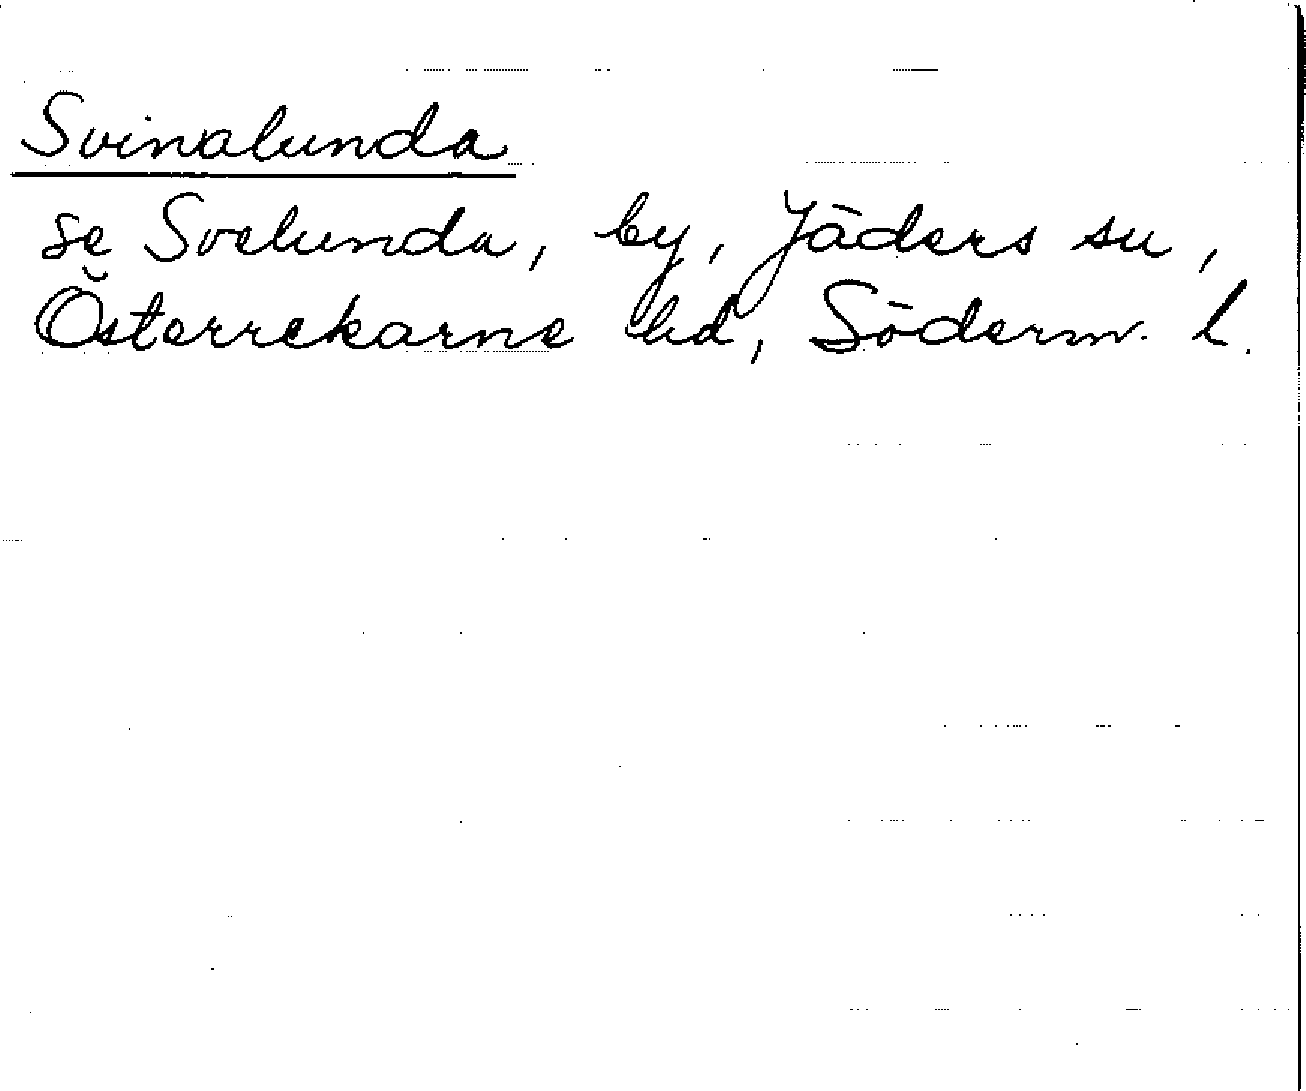 Svinalunda
se Svelunda, by, Jäders sn,
Österrekarne hd, Söderm. l.